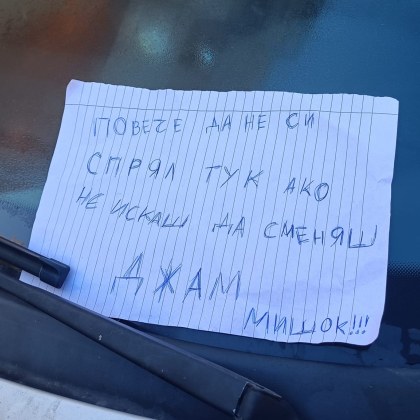 ПОВЕЧЕ ДА НЕ СИ
СПРЯЛ ТУК АКО
НЕ ИСКАШ ДА СМЕНЯШ
ДЖАМ
МИШОК!!!